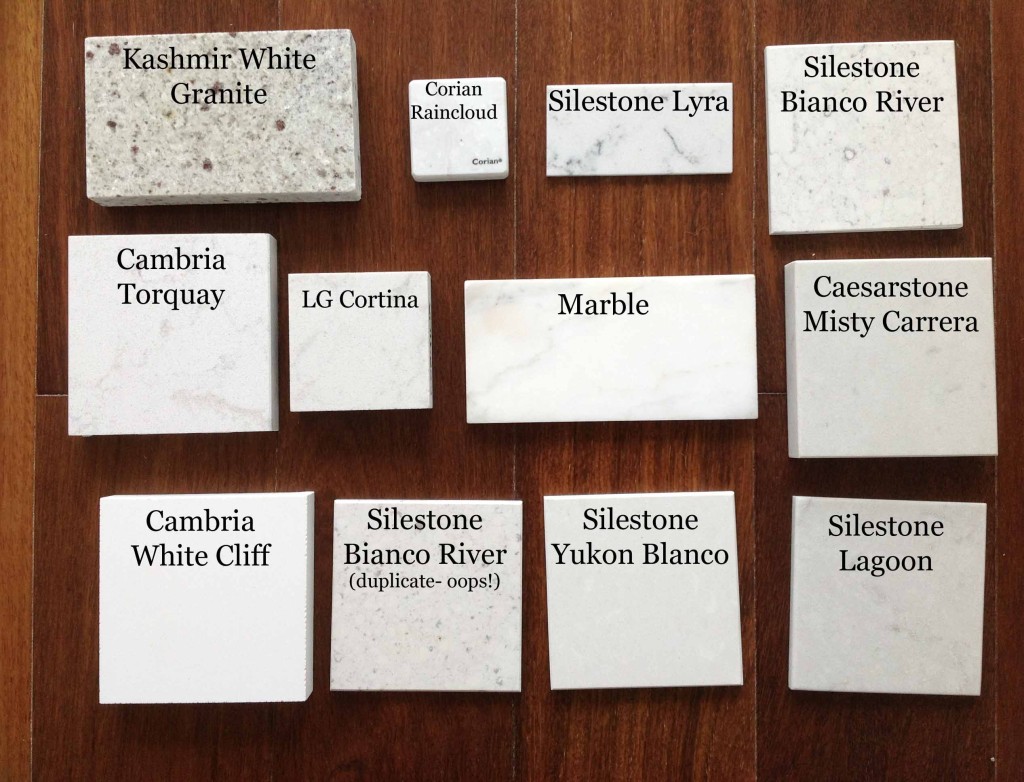 Kashmir White
Granite
Corian
Raincloud
Corian®
Silestone Lyra
Silestone
Bianco River
Cambria
Torquay
LG Cortina
Marble
Caesarstone
Misty Carrera
Cambria
White Cliff
Silestone
Bianco River
(duplicate- oops!)
Silestone
Yukon Blanco
Silestone
Lagoon